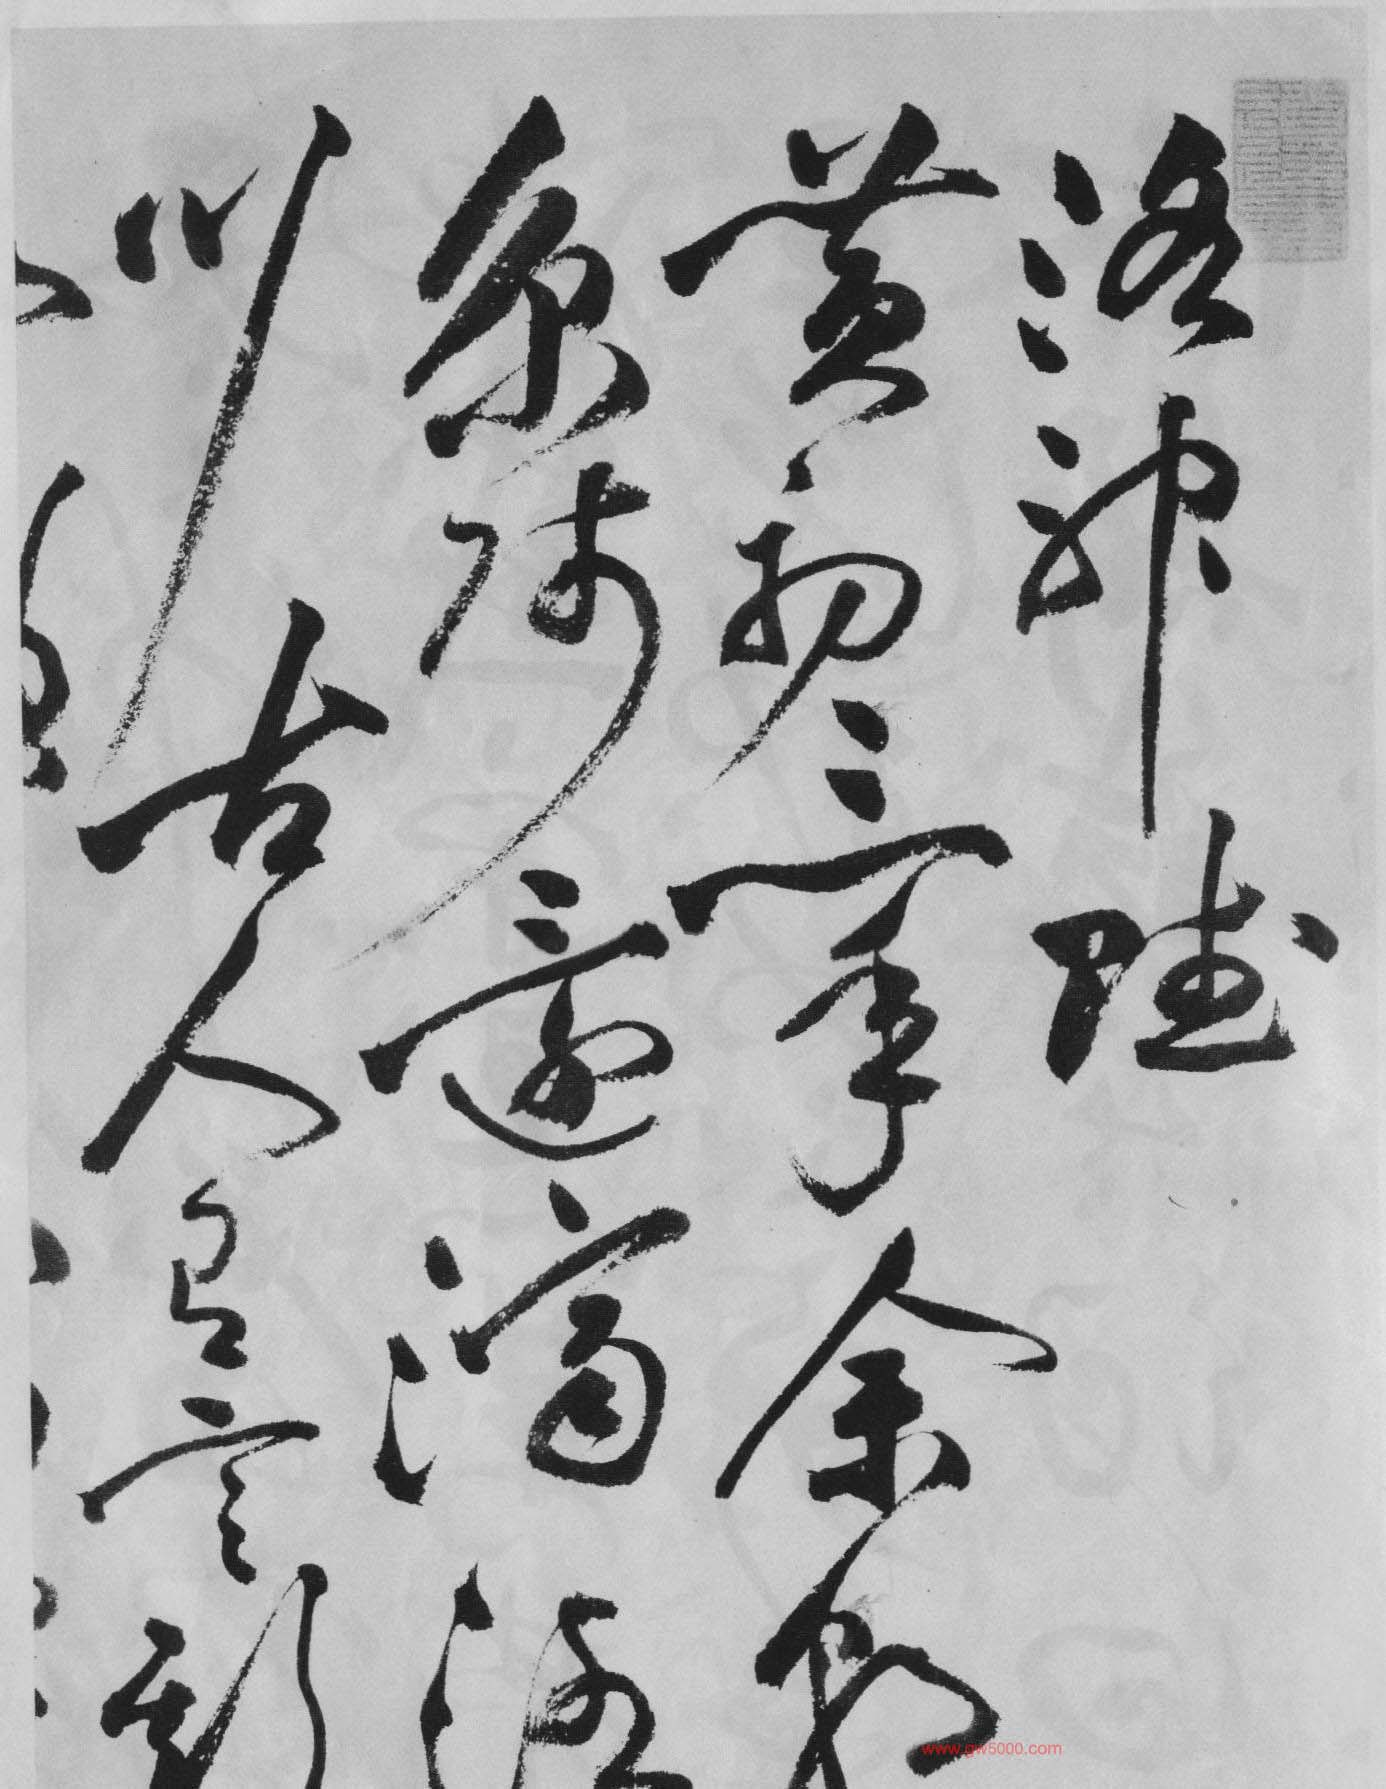 洛神賦
黄初三年余朝
京師還濟洛
川古人有言斯
www.gw5000.com